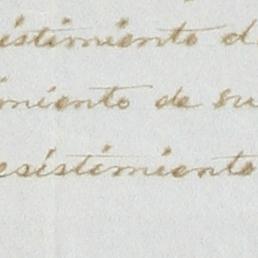 esistimiento d
imiento de su
esistimiento